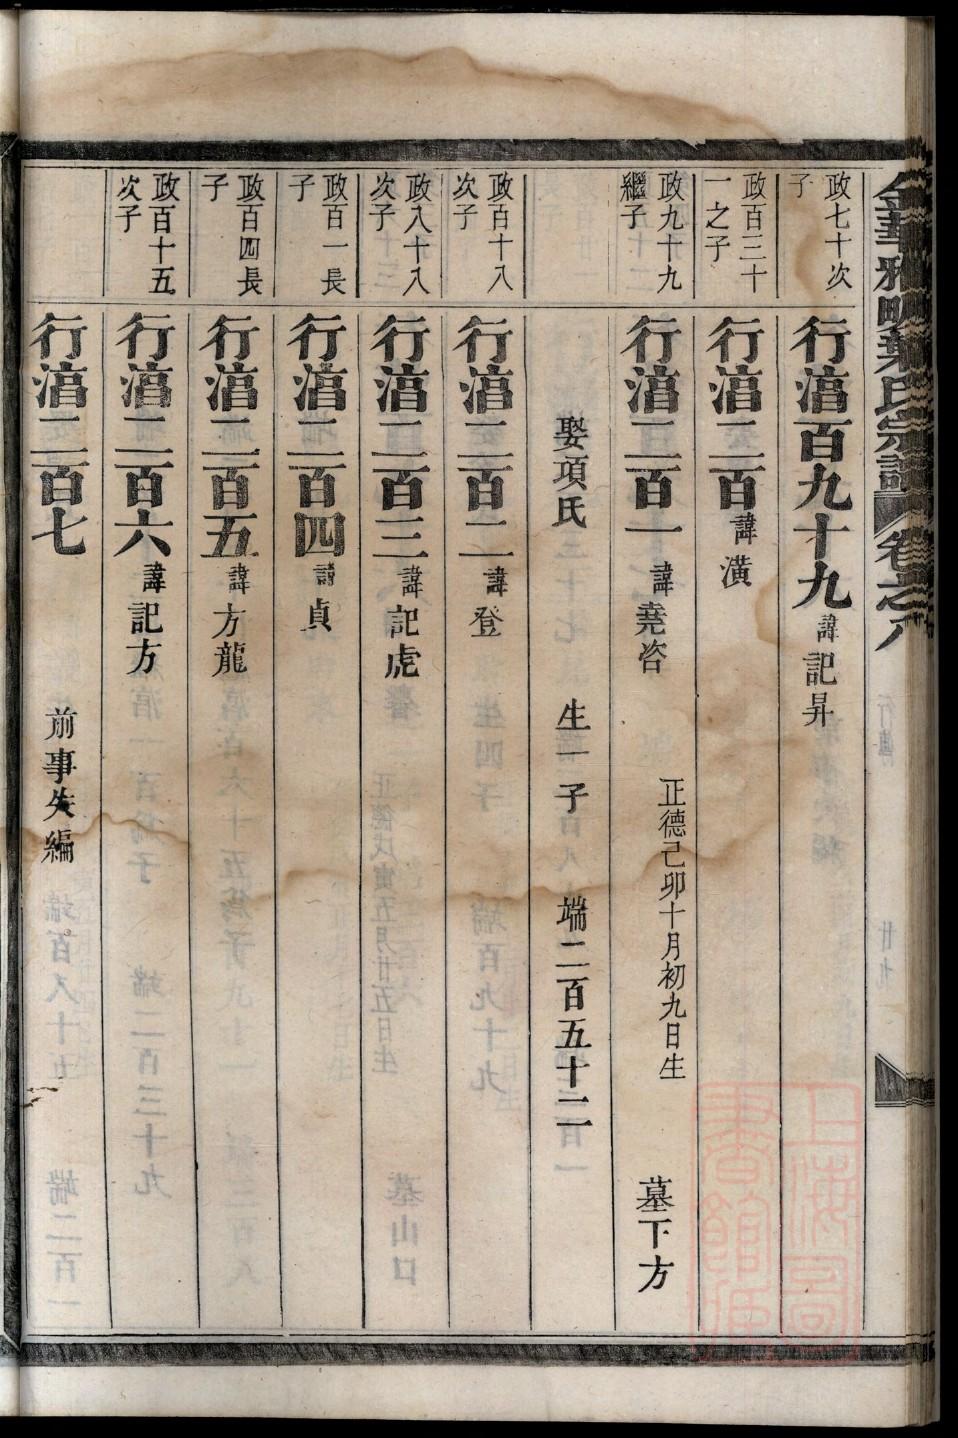 金華雅畈葉氏宗譜 卷之八
行傳
廿九
政七十次子
行淯百九十九 諱記昇
政百三十一之子
行淯二百 諱潢
政九十九繼子
行淯二百一 諱堯咨 正德己卯十月初九日生 墓下方
娶項氏 生一子 端二百五十二
政百十八次子
行淯二百二 諱登
政八十八次子
行淯二百三 諱記虎
政百一長子
行淯二百四 諱貞
政百四長子
行淯二百五 諱方龍
政百十五次子
行淯二百六 諱記方
行淯二百七 前事失編
上海圖書館藏